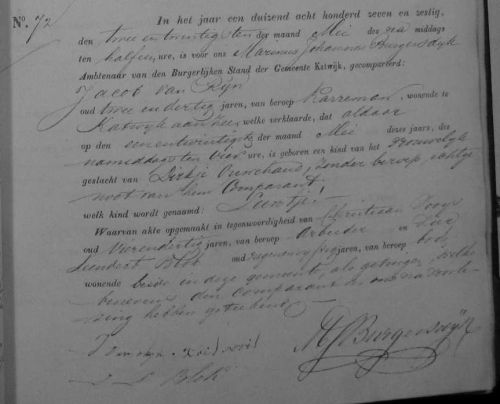 No. 72 In het jaar een duizend acht honderd zeven en zestig,
den twee en twintigsten der maand Mei des na middags
ten half een ure, is voor ons Marinus Johannes Burgersdijk
Ambtenaar van den Burgerlijken Stand der Gemeente Katwijk, gecompareerd:
Jacob van Rijn
oud twee en dertig jaren, van beroep Karreman, wonende te
Katwijk aan Zee, welke verklaarde, dat aldaar
op den een en twintigsten der maand Mei dezes jaars, des
namiddags ten vier ure, is geboren een kind van het Vrouwelijk
geslacht van Dirkje Ouwehand, zonder beroep, echtge
noot van hem Comparant,
welk kind wordt genaamd:
Waarvan akte opgemaakt in tegenwoordigheid van Christiaan
oud jaren, van beroep Arbeider en
Leendert Blok oud jaren, van beroep
wonende beide in deze gemeente, als getuigen, welke
benevens den comparant en ons na voorle
zing hebben geteekend.
J van rijn
L Blok MJBurgersdijk